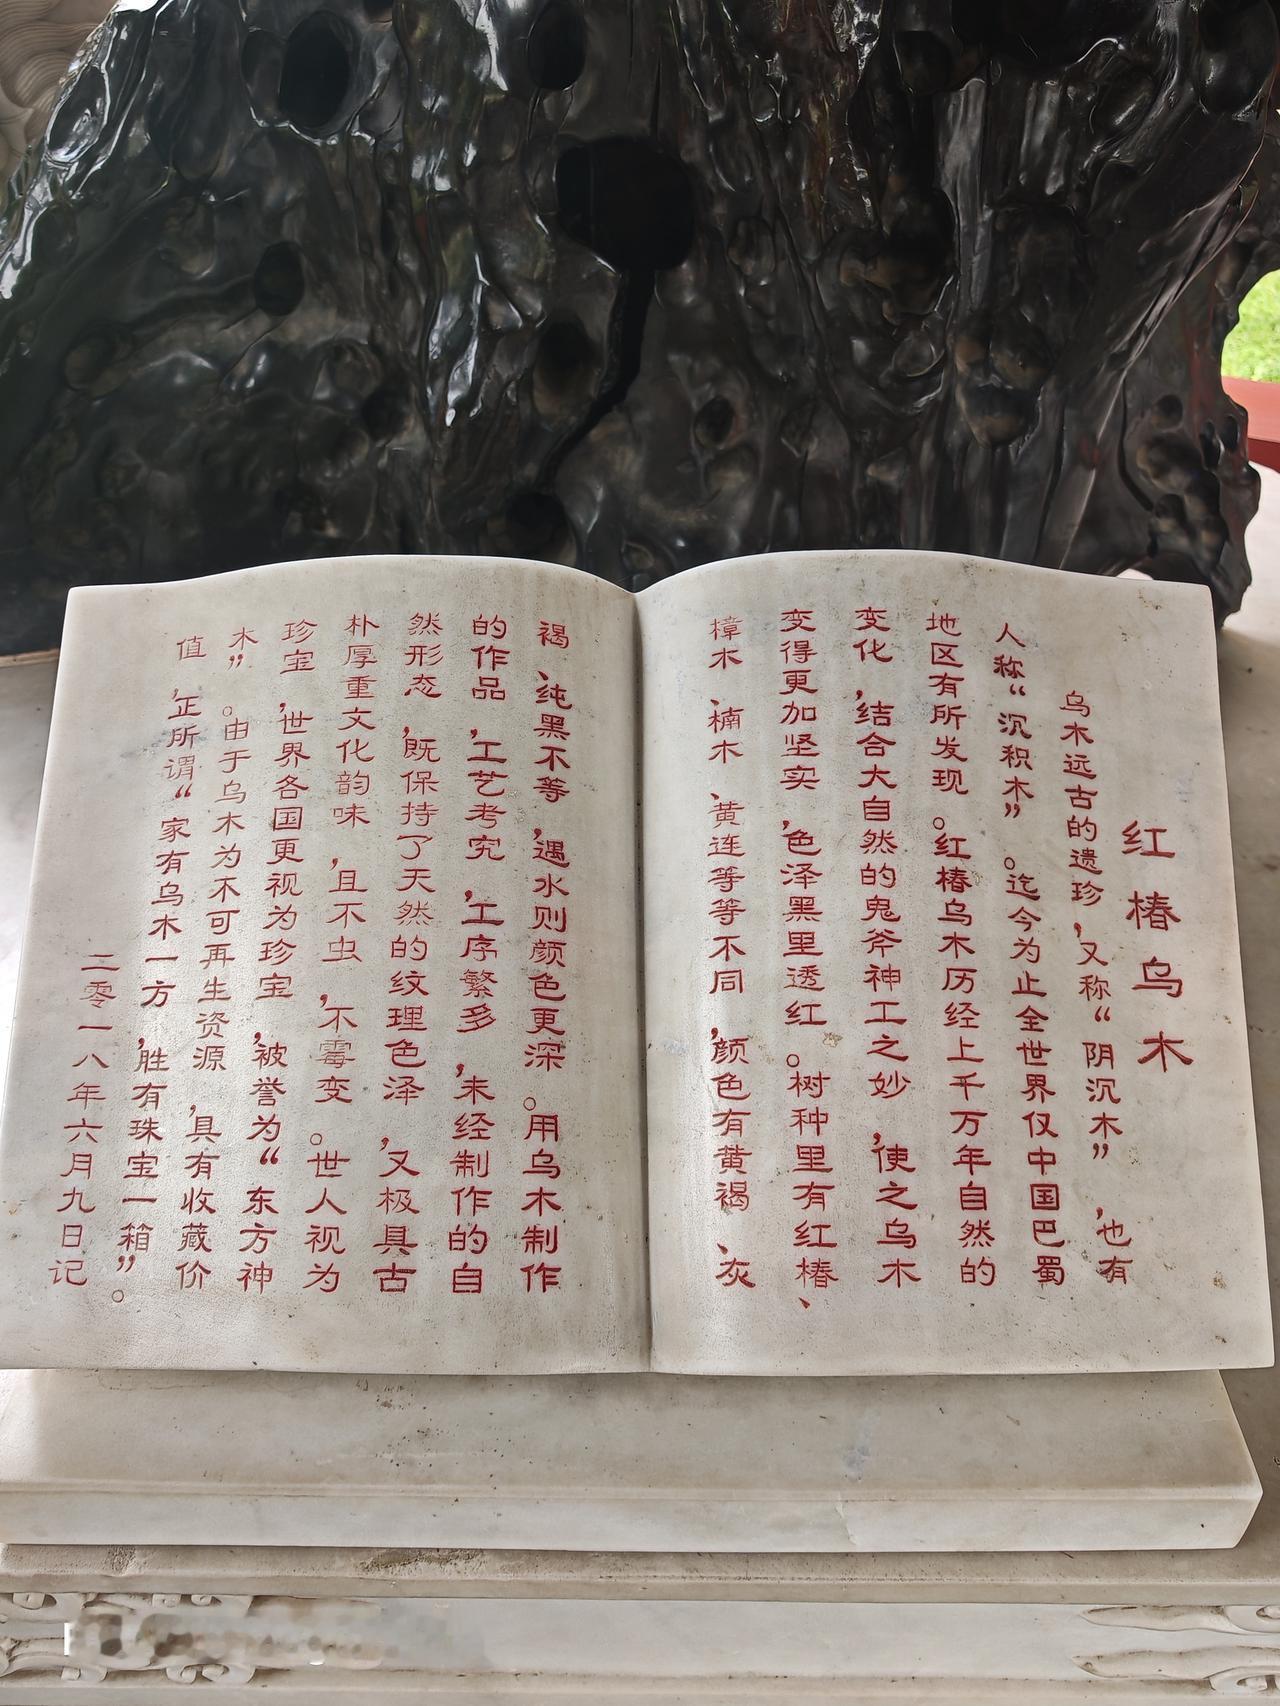 红椿乌木
乌木远古的遗珍，又称“阴沉木”，也有
人称“沉积木”。迄今为止全世界仅中国巴蜀
地区有所发现。红椿乌木历经上千万年自然的
变化，结合大自然的鬼斧神工之妙，使之乌木
变得更加坚实，色泽黑里透红。树种里有红椿、
樟木、楠木、黄连等等不同，颜色有黄褐、灰
褐、纯黑不等，遇水则颜色更深。用乌木制作
的作品，工艺考究，工序繁多，未经制作的自
然形态，既保持了天然的纹理色泽，又极具古
朴厚重文化韵味，且不虫，不霉变。世人视为
珍宝，世界各国更视为珍宝，被誉为“东方神
木”。由于乌木为不可再生资源，具有收藏价
值，正所谓“家有乌木一方，胜有珠宝一箱”。
二零一八年六月九日记